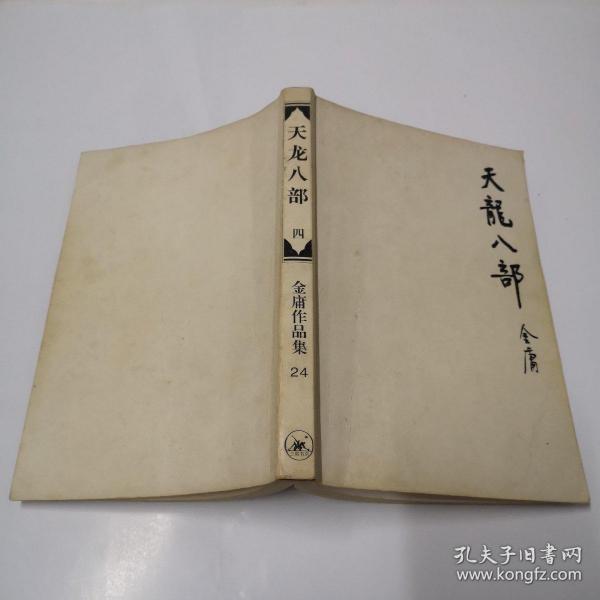 天龙八部
四
金庸作品集
24
三联书店
天龍八部
金庸
孔夫子旧書网
www.kongfz.com